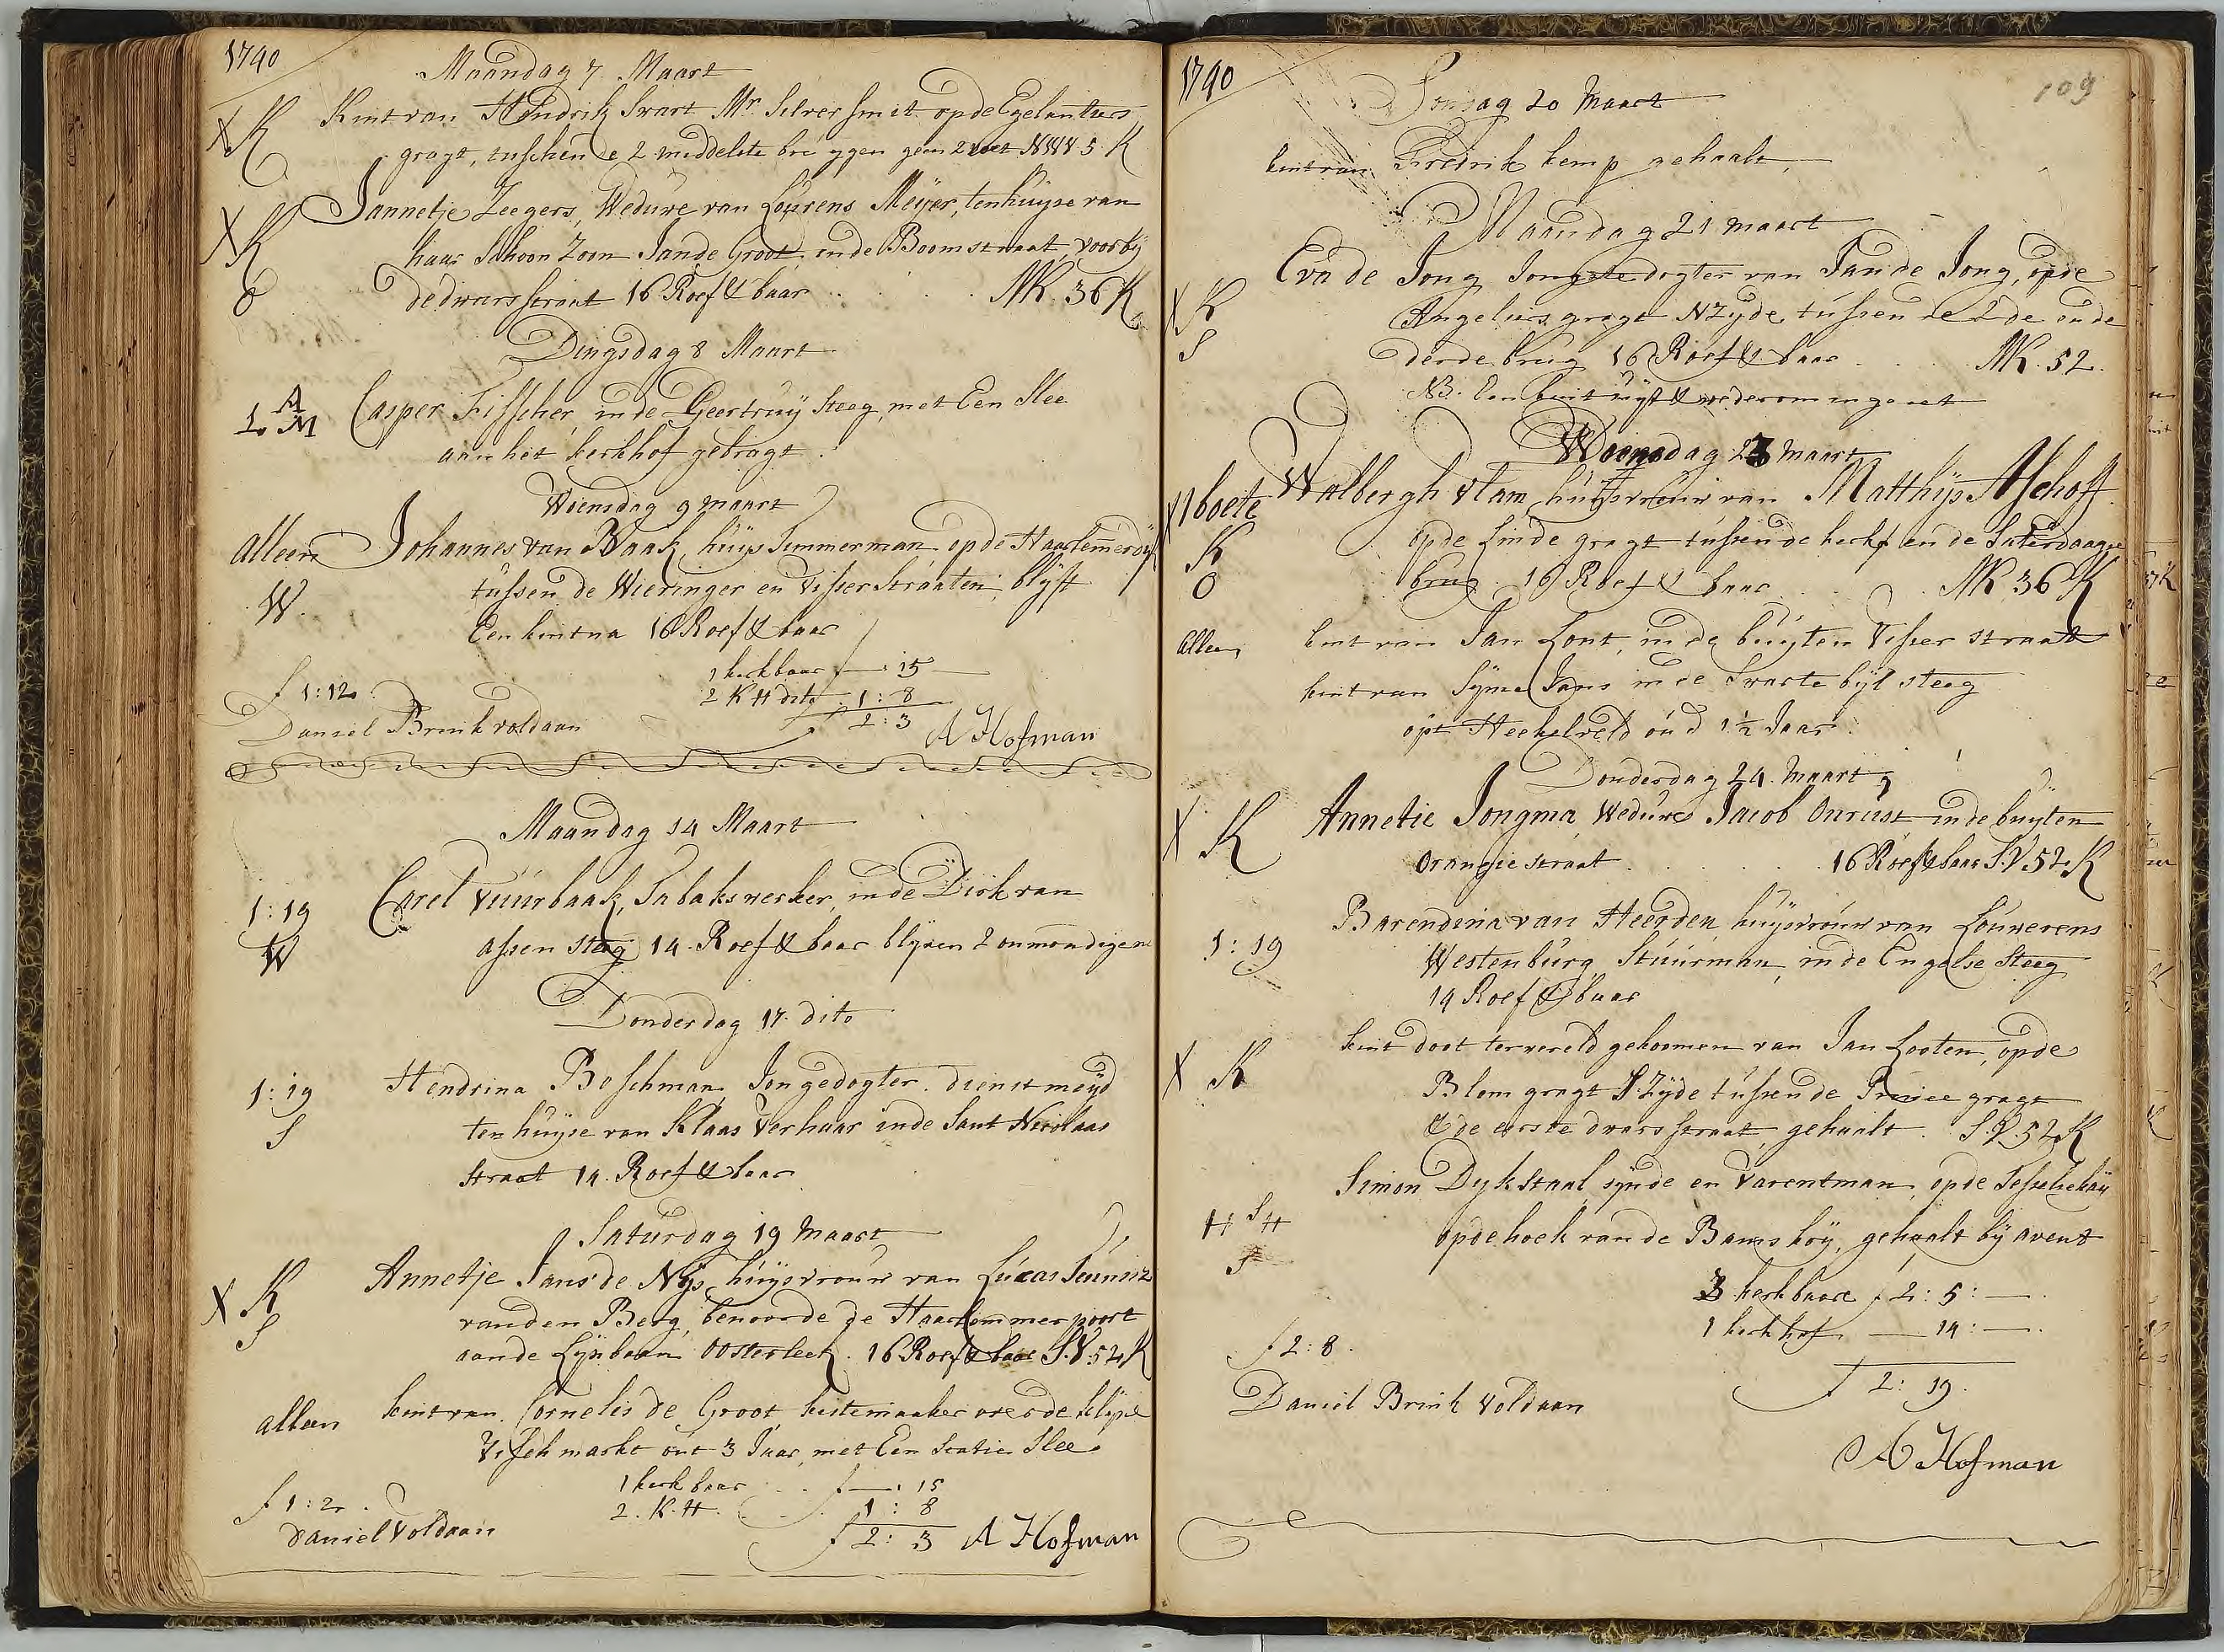 1740
Maandag 7 Maart
X K Kint van Hendrik Swart Mr. Silversmit op de Egelantiers
gragt, tuschen de 2 middelste bruggen geen 2 voet NWV 5 K
X K Jannetje Zeegers, Weduwe van Lourens Meijer, ten huijse van
haar Schoon Zoon Jan de Groot, in de Boomstraat, voorbij
O de dwarsstraat 16 Roef & baar . . . NK. 36 K
Dingsdag 8 Maart
1 A M Casper Fisscher, in de Geertruij Steeg, met Een Slee
aan het kerkhof gebragt.
Woensdag 9 maart
alleen Johannes van Baak, huijs Timmerman op de Haarlemerdijk
W. tussen de Wieringer en Visser Straaten, blijft
Een kint na 16 Roef & baar
1 kerkbaar f — : 15 —
f 1:12. 2 K H dito . 1 : 8
Daniel Brink voldaan f 2 : 3 A Hofman
Maandag 14 Maart
1:19 Carel Vuurbaak, Tabakswerker, in de Dirk van
W assen Steeg 14. Roef & baar blijven 2 onmondige na
Donderdag 17. dito
1:19 Hendrina Boschman, Jongedogter. dienstmeijd
S ten huijse van Klaas Verhaar in de Sant Nicolaas
Straat 14. Roef & baar
Saturdag 19 Maart
X K Annetje Jans de Nijs, huijsvrouw van Lucas Teunisz
S van den Berg, benoorde de Haarlemmerpoort
aan de Lijnbaan Oosterleek. 16 Roef & baar S.V. 52 K
alleen kint van Cornelis de Groot kistemaaker over de klijne
Visch markt out 3 Jaar, met Een Statie Slee
1 kerkbaar . . f — : 15
f 1:2. 2. K.H. . . 1 : 8
Daniel Voldaan f 2 : 3 A Hofman
1740
109
Sondag 20 Maart
kint van Fredrik kemp gehaalt
Maandag 21 maart
X K Eva de Jong Jongedogter van Jan de Jong, op de
Angeliers gragt NZijde, tussen de 2de en de
S derde brug 16 Roef & baar . . . NK. 52.
NB. Een kint uijt & wederom ingeset
Woensdag 23 maart
X 1 boete Walbergh Vlam, huijsvrouw van Matthijs Aschoff
K op de Linde gragt tussen de kerk en de Saterdaagse
O brug 16 Roef & baar . . . NK 36 K
Alleen kint van Jan Lont, in de buijten Visser straat
kint van Sijme Jans in de Swarte bijl steeg
opt Heekelveld oud 1½ Jaar.
Donderdag 24. Maart
X K Annetie Jongma, Weduwe Jacob Onrust in de buijten
Orangie straat . . . 16 Roef & baar S.V 52 K
1:19 Barendina van Heerden, huijsvrouw van Louwerens
Westenburg Stuurman, in de Engelse Steeg
14 Roef & baar
X K kint doot ter wereld gekoomen van Jan Looten, op de
Blomgragt S.Zijde tussen de Prince gragt
& de eerste dwarsstraat, gehaalt. S.V. 52 K
Simon Dijkstaal, sijnde en Varentman, op de Tesselsekaij
H S H op de hoek van de Bamskoij, gehaalt bij avent
3 kerkbaare f 2 : 5 : —.
1 kerkhof — 14 : —.
f 2:8. f 2 : 19.
Daniel Brink Voldaan
A Hofman